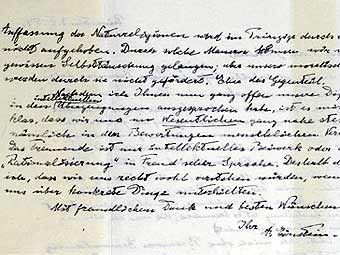 Auffassung der Naturreligionen wird im Prinzip durch
nicht aufgehoben. Durch solche Mauern können wir
gewissen Selbsttäuschung gelangen; aber unsere moralischen
werden durch sie nicht gefördert. Eher das Gegenteil.
Nachdem ich Ihnen nun ganz offen unsere
intellektuellen
in den Überzeugungen ausgesprochen habe, ist es mir
klar, dass wir uns im Wesentlichen ganz nahe stehen
nämlich in den Bewertungen menschlichen
Das Trennende ist nur intellektuelles Beiwerk oder
"Rationalisierung" in Freud'scher Sprache. Deshalb
ich, dass wir uns recht wohl verstehen würden, wenn
uns über konkrete Dinge unterhielten.
Mit freundlichem Dank und besten Wünschen
Ihr
A. Einstein.